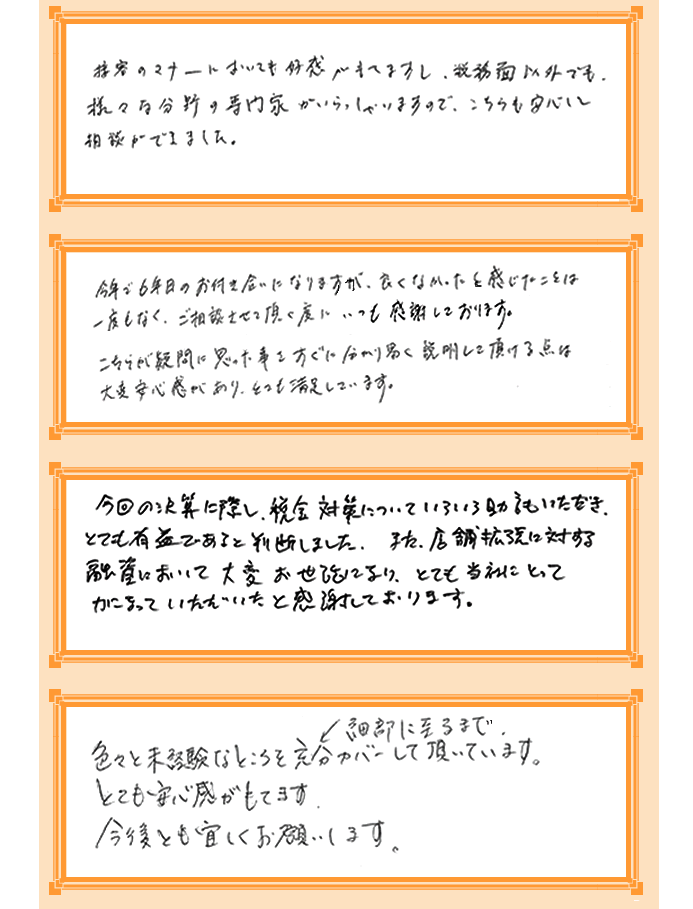 接客のマナーにおいても好感がもてますし、税務面以外でも、
様々な分野の専門家がいらっしゃいますので、こちらも安心して
相談ができました。
今年で6年目のお付き合いになりますが、良くなかったと感じたことは
一度もなく、ご相談させて頂く度にいつも感謝しております。
こちらが疑問に思った事をすぐに分かり易く説明して頂ける点は
大変安心感があり、とても満足しています。
今回の決算に際し、税金対策についていろいろ助言もいただき、
とても有益であると判断しました。また、店舗拡張に対する
融資において大変お世話になり、とても当社にとって
がいただいたと感謝しております。
細部に至るまで、
色々と未経験なところを充分カバーして頂いています。
とても安心感がもてます。
今後とも宜しくお願いします。